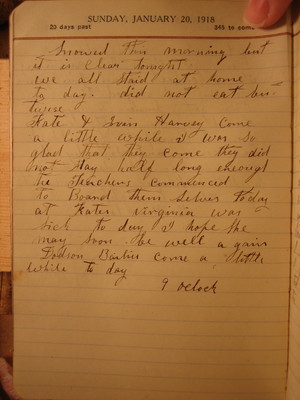 SUNDAY, JANUARY 20, 1918
20 days past 345 to come
Snowed this morning but
it is clear tonight
we all staid at home
to day. did not eat but
twice
Kate & Ivin Harvey come
a little while I was so
glad that they come they did
not stay half long enough
the Teachers commenced
to Board them selves today
at Kates virginia was
sick to day I hope she
may soon be well a gain
Dodson come a little
while to day
9 oclock